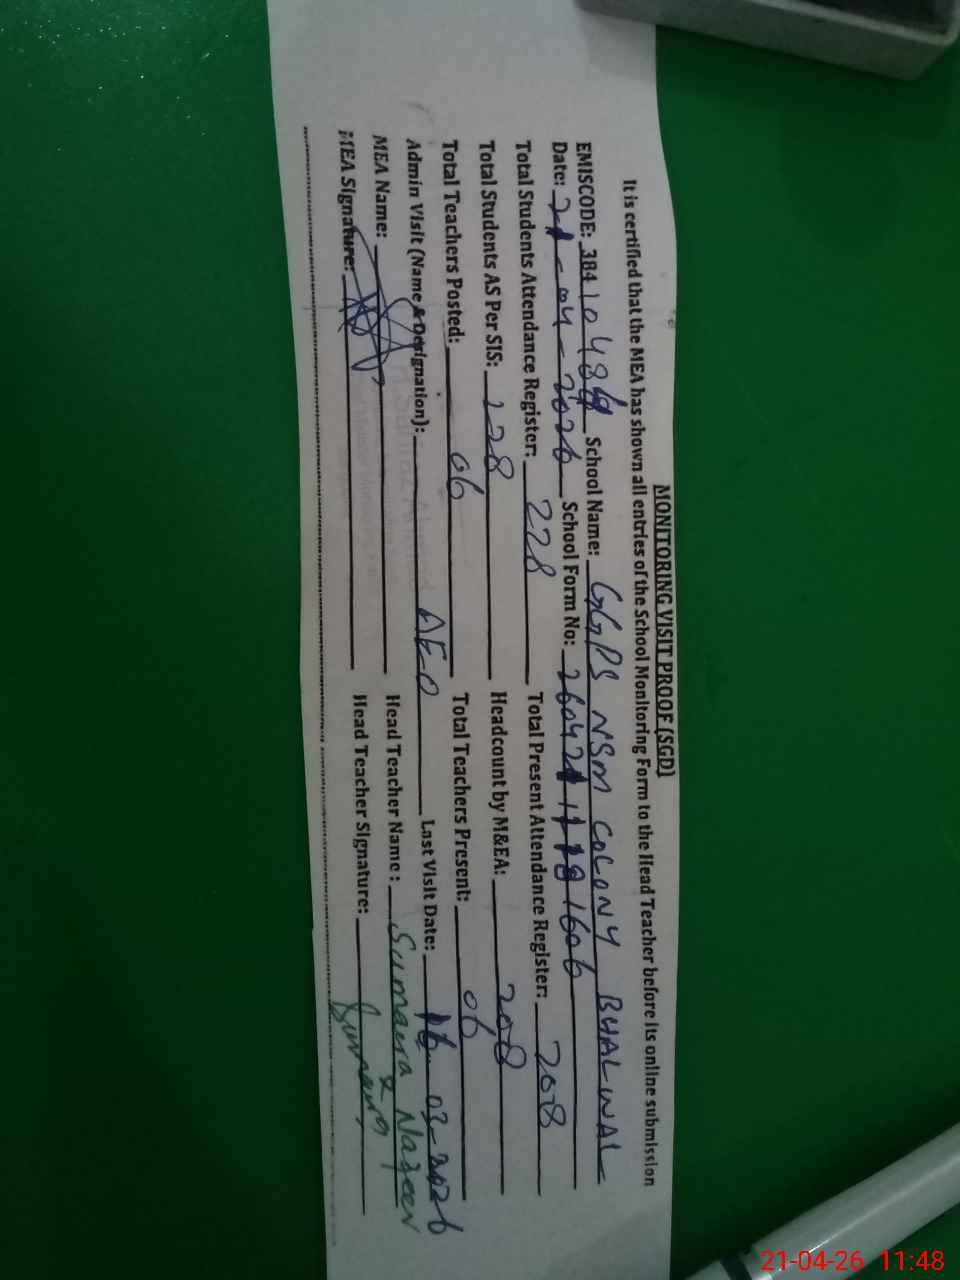 MONITORING VISIT PROOF (SGD)
It is certified that the MEA has shown all entries of the School Monitoring Form to the Head Teacher before its online submission
EMISCODE: 384104 School Name: GGPS NSM COLONY BHALWAL
Date: 21-04-2026 School Form No:
Total Students Attendance Register: 228 Total Present Attendance Register: 208
Total Students AS Per SIS: 228 Headcount by M&EA: 208
Total Teachers Posted: 06 Total Teachers Present: 06
Admin Visit (Name & Designation): AEO Last Visit Date: 16-03-2026
MEA Name: Head Teacher Name: Sumaira Nazeer
MEA Signature: Head Teacher Signature: Sumaira
21-04-26 11:48